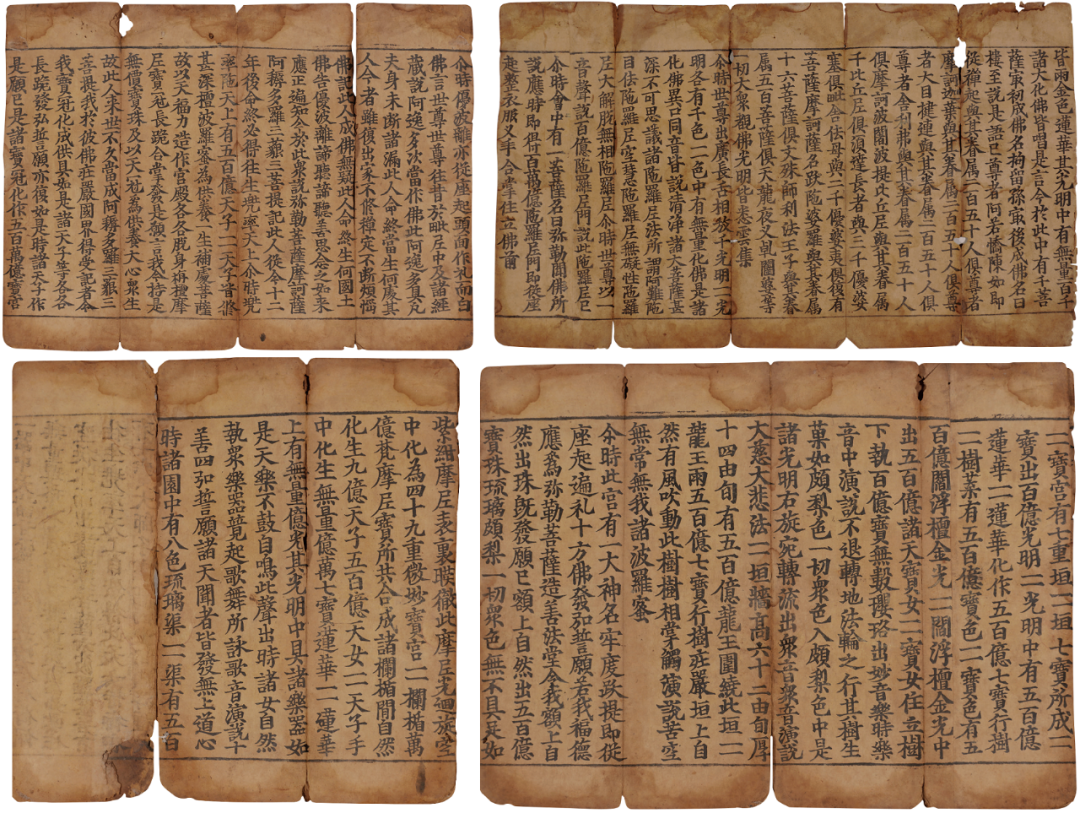 皆雨金色蓮華其光明中有無量百千
諸大化佛皆唱是言今於此中有千菩
薩冣初成佛名拘留孫冣後成佛名曰
樓至說是語已尊者阿若憍陳如即
從禪起與其眷属二百五十人俱尊者
摩訶迦葉與其眷属二百五十人俱尊
者大目揵連與其眷属二百五十人俱
尊者舍利弗與其眷属二百五十人
俱摩訶波闍波提比丘尼與其眷属
千比丘尼俱湏達長者與三千優婆
塞俱毗舍佉母與二千優婆夷俱復有
菩薩摩訶薩名跋陁婆羅與其眷属
十六菩薩俱文殊師利法王子與其眷
属五百菩薩俱天龍夜叉乹闥婆等
一切大衆覩佛光明皆悉雲集
尒時世尊出廣長舌相放千光明一一光
明各有千色一一色中有無量化佛是諸
化佛異口同音皆說清淨諸大菩薩甚
深不可思議諸陁羅尼法所謂阿難陁
目佉陁羅尼空慧陁羅尼無礙性陁羅
尼大解脫無相陁羅尼尒時世尊以一
音聲說百億陁羅尼門說此陁羅尼已
尒時會中有一菩薩名曰弥勒聞佛所
說應時即得百萬億陁羅尼門即從座
起整衣服叉手合掌住立佛前
尒時優波離亦從座起頭面作礼而白
佛言世尊世尊往昔於毗尼中及諸經
藏說阿逸多次當作佛此阿逸多具凡
夫身未斷諸漏此人命終當生何處其
人今者雖復出家不脩禪定不斷煩惱
佛記此人成佛無疑此人命終生何國土
佛告優波離諦聽諦聽善思念之如来
應正遍知今於此衆說弥勒菩薩摩訶薩
阿耨多羅三藐三菩提記此人從今十二
年後命終必得往生兜率陁天上尒時兜
率陁天上有五百億天子一一天子皆脩
甚深檀波羅蜜為供養一生補處菩薩
故以天福力造作宮殿各各脫身栴檀摩
尼寶冠長跪合掌發是願言我今持是
無價寶珠及以天冠為供養大心衆生
故此人来世不久當成阿耨多羅三藐三
菩提我於彼佛莊嚴國界得受記者令
我寶冠化成供具如是諸天子等各各
長跪發弘誓願亦復如是時諸天子作
是願已是諸寶冠化作五百萬億寶宮
一一寶宮有七重垣一一垣七寶所成一一
寶出百億光明一一光明中有五百億
蓮華一一蓮華化作五百億七寶行樹
一一樹葉有五百億寶色一一寶色有五
百億閻浮檀金光一一閻浮檀金光中
出五百億諸天寶女一一寶女住立樹
下執百億寶無數瓔珞出妙音樂時樂
音中演說不退轉地法輪之行其樹生
菓如頗梨色一切衆色入頗梨色中是
諸光明右旋宛轉流出衆音衆音演說
大慈大悲法一一垣牆高六十二由旬厚
十四由旬有五百億龍王圍繞此垣一一
龍王雨五百億七寶行樹莊嚴垣上自
然有風吹動此樹樹相掌觸演說苦空
無常無我諸波羅蜜
尒時此宮有一大神名牢度跋提即從
座起遍礼十方佛發弘誓願若我福德
應為弥勒菩薩造善法堂令我額上自
然出珠既發願已額上自然出五百億
寶珠琉璃頗梨一切衆色無不具足如
紫紺摩尼表裏暎徹此摩尼光迴旋空
中化為四十九重微妙寶宮一一欄楯萬
億梵摩尼寶所共合成諸欄楯間自然
化生九億天子五百億天女一一天子手
中化生無量億萬七寶蓮華一一蓮華
上有無量億光其光明中具諸樂器如
是天樂不鼓自鳴此聲出時諸女自然
執衆樂器競起歌舞所詠歌音演說十
善四弘誓願諸天聞者皆發無上道心
時諸園中有八色琉璃渠一一渠有五百